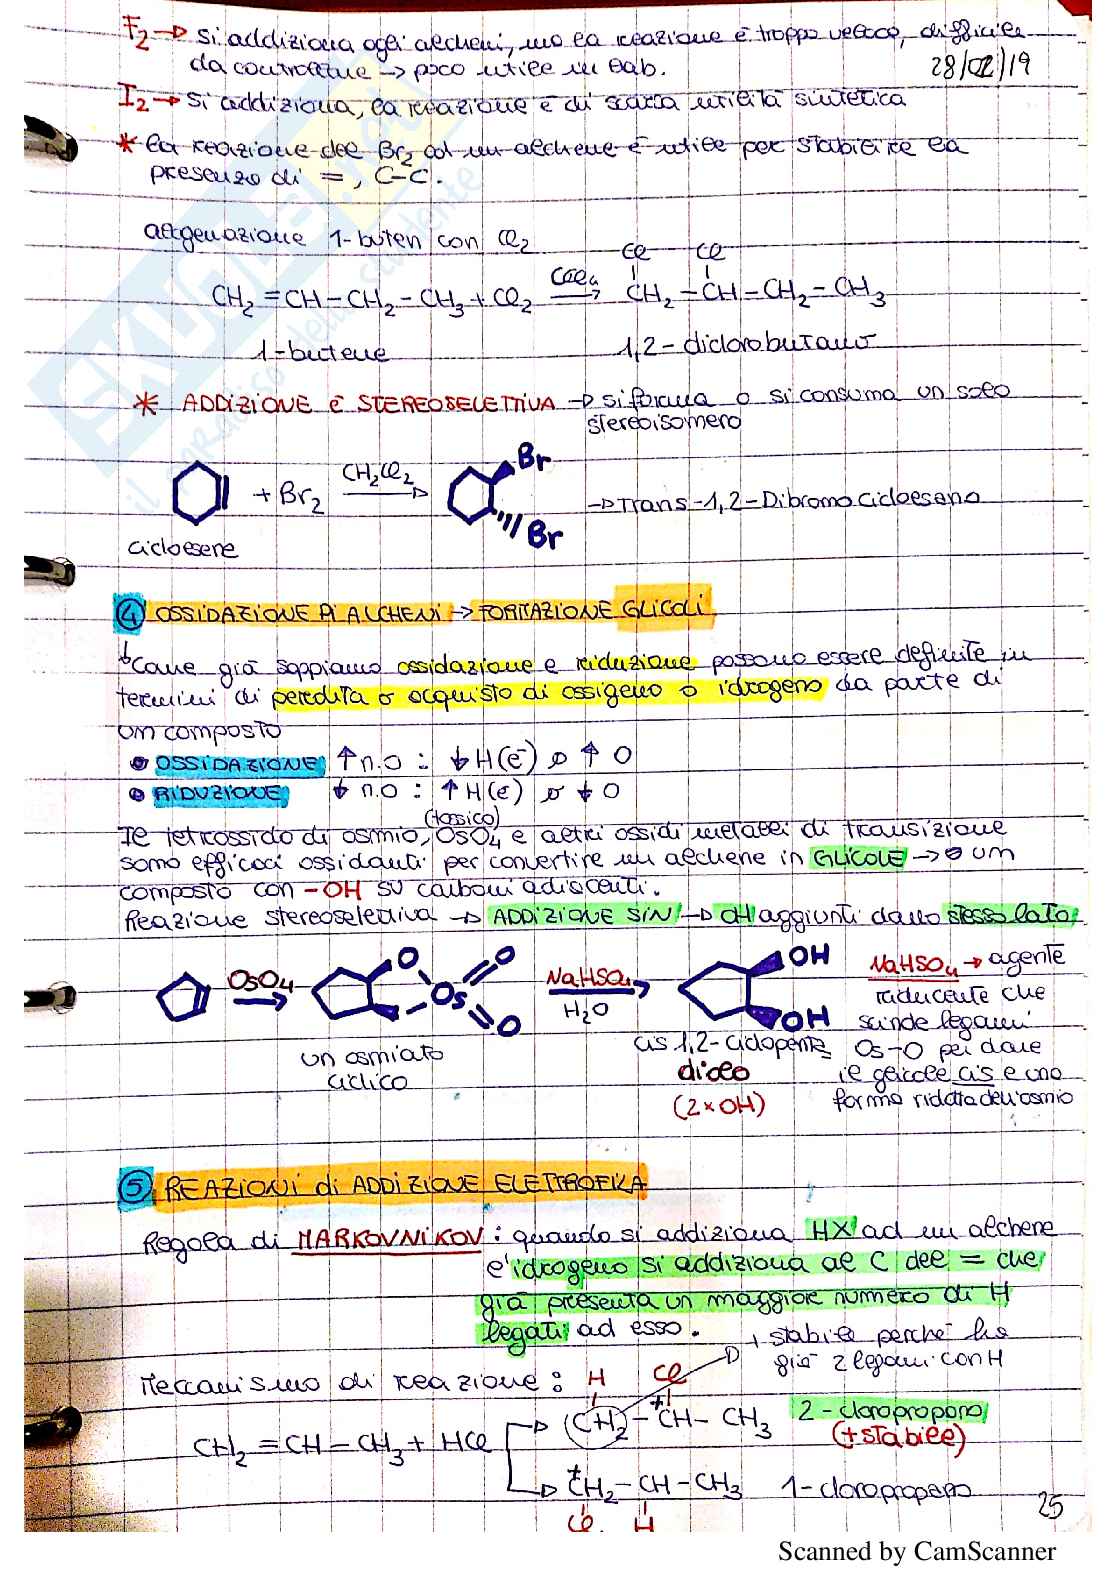 F₂ → si addiziona agli alcheni, ma la reazione è troppo veloce, difficile
da controllare → poco utile in lab. 28/02/19
I₂ → si addiziona, la reazione è di scarsa utilità sintetica
* la reazione del Br₂ ad un alchene è utile per stabilire la
presenza di =, C-C.
alogenazione 1-buten con Cl₂
Cl Cl
CH₂=CH-CH₂-CH₃ + Cl₂ CCl₄ → CH₂-CH-CH₂-CH₃
1-butene 1,2-diclorobutano
* ADDIZIONE è STEREOSELETTIVA → si forma o si consuma un solo
stereoisomero
+ Br₂ CH₂Cl₂ → Br Br → Trans-1,2-Dibromocicloesano
cicloesene
④ OSSIDAZIONE DI ALCHENI → FORMAZIONE GLICOLI
↓ Come già sappiamo ossidazione e riduzione possono essere definite in
termini di perdita o acquisto di ossigeno o idrogeno da parte di
un composto
• OSSIDAZIONE ↑ n.O : ↓ H(e⁻) o ↑ O
• RIDUZIONE ↓ n.O : ↑ H(e⁻) o ↓ O
(tossico)
Il tetrossido di osmio, OsO₄ e altri ossidi metalli di transizione
sono efficaci ossidanti per convertire un alchene in GLICOLE → un
composto con -OH su carboni adiacenti.
Reazione stereoselettiva → ADDIZIONE SIN → OH aggiunti dallo stesso lato
OsO₄ → O Os O O NaHSO₄ H₂O → OH OH
NaHSO₄ → agente
riducente che
scinde legami
Os-O per dare
il glicole cis e una
forma ridotta dell'osmio
un osmiato
ciclico
cis 1,2-ciclopente
diolo
(2×OH)
⑤ REAZIONI di ADDIZIONE ELETTROFILA
Regola di MARKOVNIKOV: quando si addiziona HX ad un alchene
l'idrogeno si addiziona al C del = che
già presenta un maggior numero di H
legati ad esso.
+ stabile perchè ha
già 2 legami con H
Meccanismo di reazione: H Cl
CH₂=CH-CH₃ + HCl → (CH₂)-⁺CH-CH₃ 2-cloropropano
(+stabile)
→ ⁺CH₂-CH-CH₃ 1-cloropropano
Cl H
25
Scanned by CamScanner